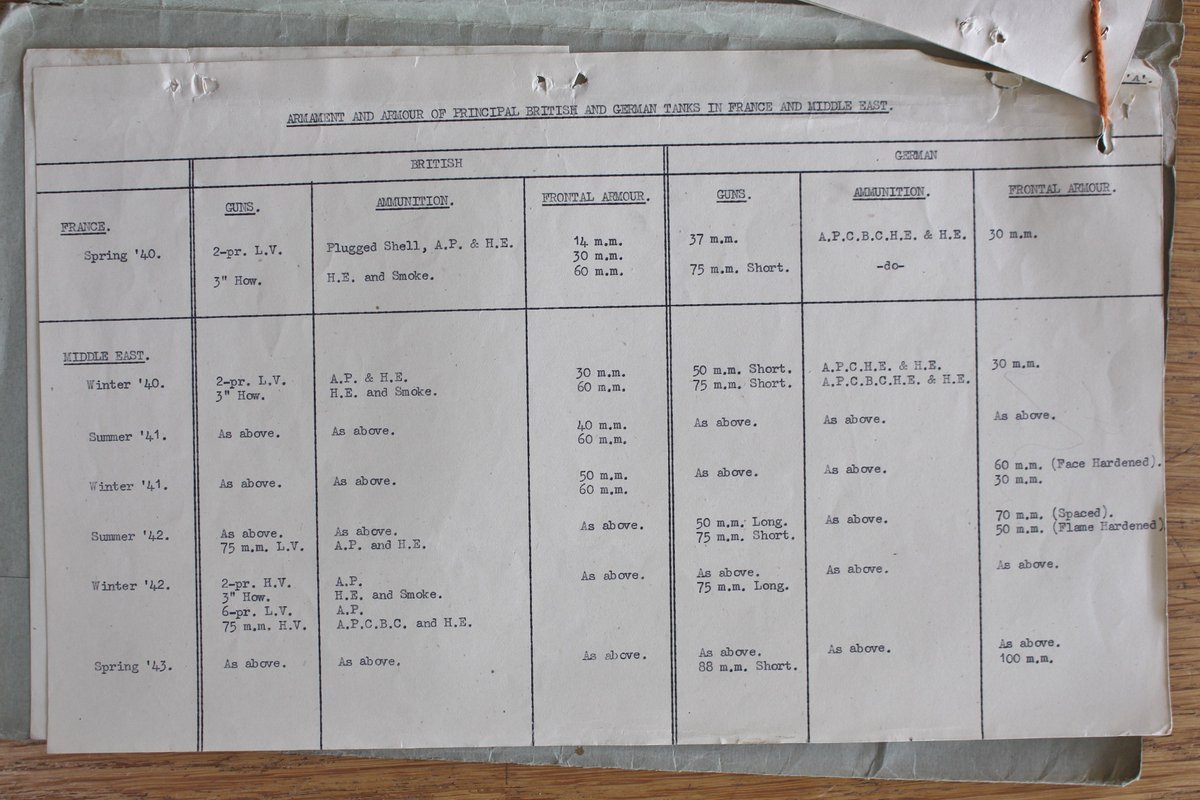 'A'.
ARMAMENT AND ARMOUR OF PRINCIPAL BRITISH AND GERMAN TANKS IN FRANCE AND MIDDLE EAST.
BRITISH GERMAN
GUNS. AMMUNITION. FRONTAL ARMOUR. GUNS. AMMUNITION. FRONTAL ARMOUR.
FRANCE.
Spring '40. 2-pr. L.V. Plugged Shell, A.P. & H.E. 14 m.m. 37 m.m. A.P.C.B.C.H.E. & H.E. 30 m.m.
30 m.m.
3" How. H.E. and Smoke. 60 m.m. 75 m.m. Short. -do-
MIDDLE EAST.
Winter '40. 2-pr. L.V. A.P. & H.E. 30 m.m. 50 m.m. Short. A.P.C.H.E. & H.E. 30 m.m.
3" How. H.E. and Smoke. 60 m.m. 75 m.m. Short. A.P.C.B.C.H.E. & H.E.
Summer '41. As above. As above. 40 m.m. As above. As above. As above.
60 m.m.
Winter '41. As above. As above. 50 m.m. As above. As above. 60 m.m. (Face Hardened).
60 m.m. 30 m.m.
Summer '42. As above. As above. As above. 50 m.m. Long. As above. 70 m.m. (Spaced).
75 m.m. L.V. A.P. and H.E. 75 m.m. Short. 50 m.m. (Flame Hardened)
Winter '42. 2-pr. H.V. A.P. As above. As above. As above. As above.
3" How. H.E. and Smoke. 75 m.m. Long.
6-pr. L.V. A.P.
75 m.m. H.V. A.P.C.B.C. and H.E.
Spring '43. As above. As above. As above. As above. As above. As above.
88 m.m. Short. 100 m.m.